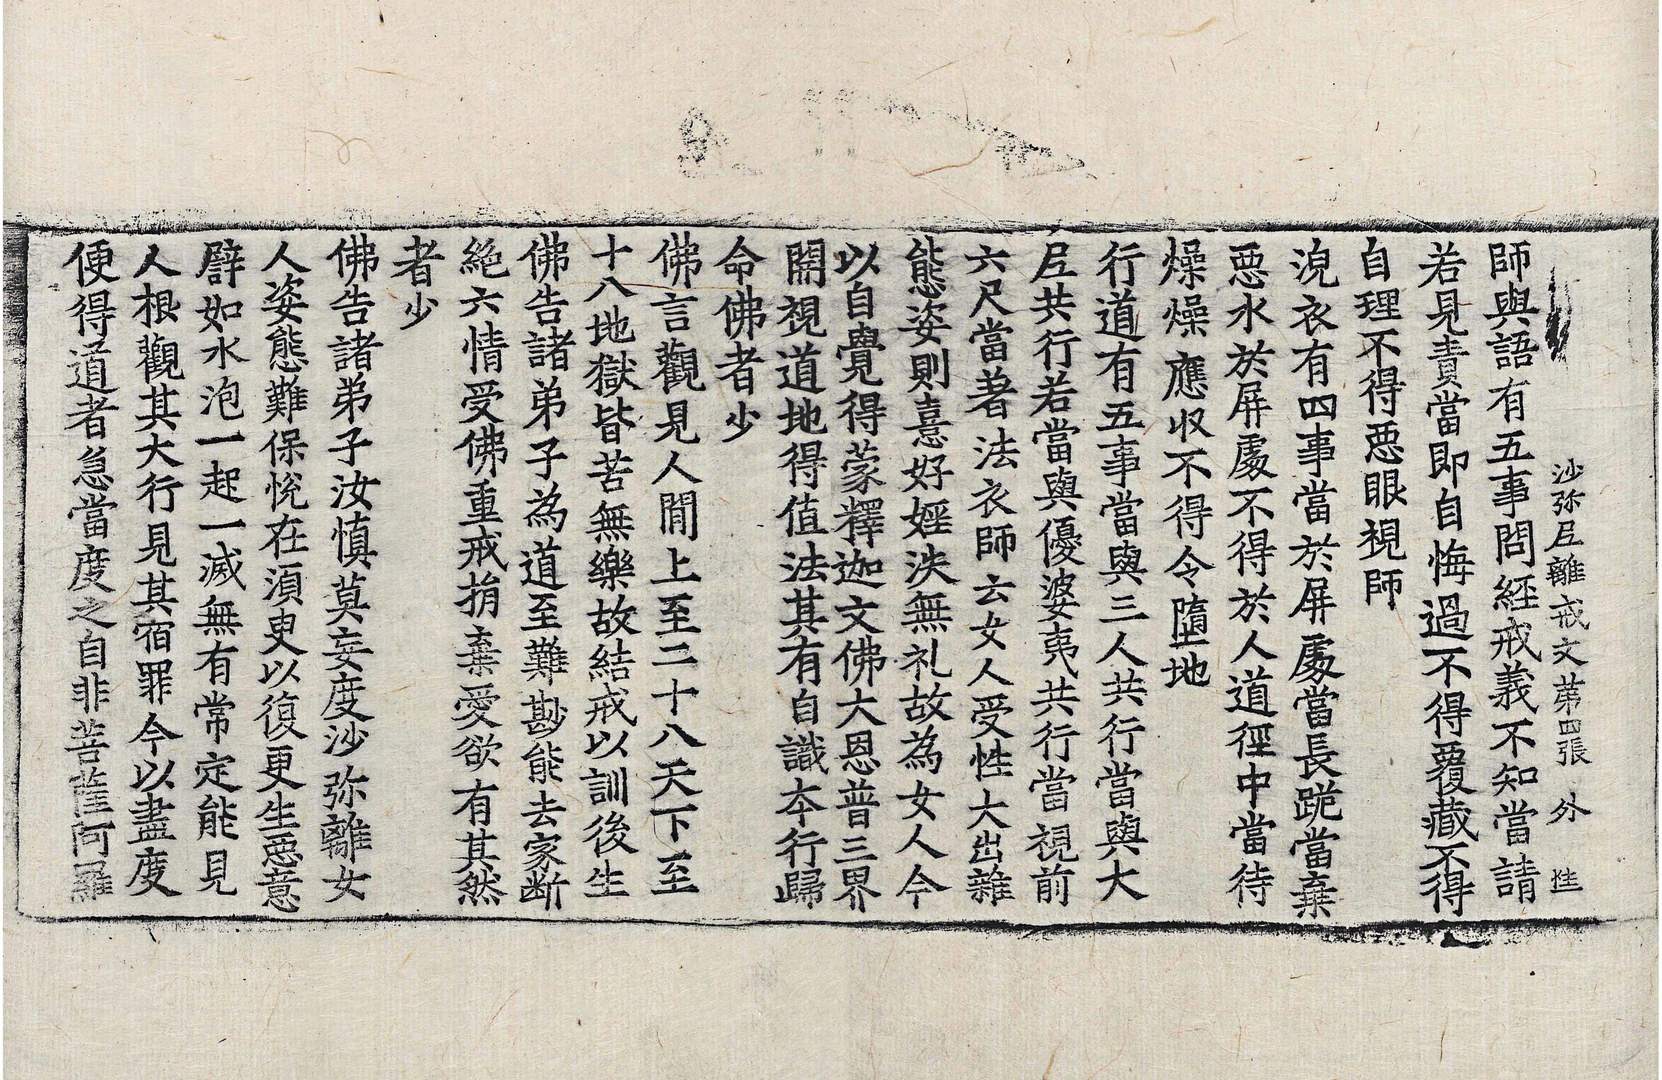 沙弥𡰱離戒文第四張 外 性
師與語有五事問經戒義不知當請
若見責當即自悔過不得覆藏不得
自理不得惡眼視師
浣衣有四事當於屏處當長跪當棄
惡水於屏處不得於人道徑中當待
燥燥應収不得令墮地
行道有五事當與三人共行當與大
𡰱共行若當與優婆夷共行當視前
六尺當著法衣師云女人受性大出雜
態姿則憙好婬泆無礼故為女人今
以自覺得蒙釋迦文佛大恩普三界
開視道地得值法其有自識夲行歸
命佛者少
佛言觀見人間上至二十八天下至
十八地獄皆苦無樂故結戒以訓後生
佛告諸弟子為道至難尠能去家断
絶六情受佛重戒捐棄愛欲有其然
者少
佛告諸弟子汝慎莫妄度沙弥離女
人姿態難保悅在須臾以復更生惡意
譬如水泡一起一滅無有常定能見
人根觀其大行見其宿罪今以盡度
便得道者急當度之自非菩薩阿羅